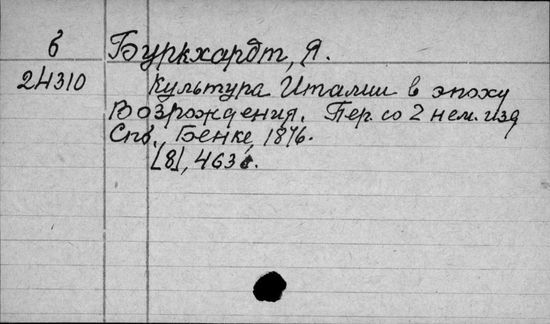 б
24310
Буркхардт, Я.
Культура Италии в эпоху
Возрождения. Пер. со 2 нем. изд
Спб., Бенке, 1876.
[8], 463 с.